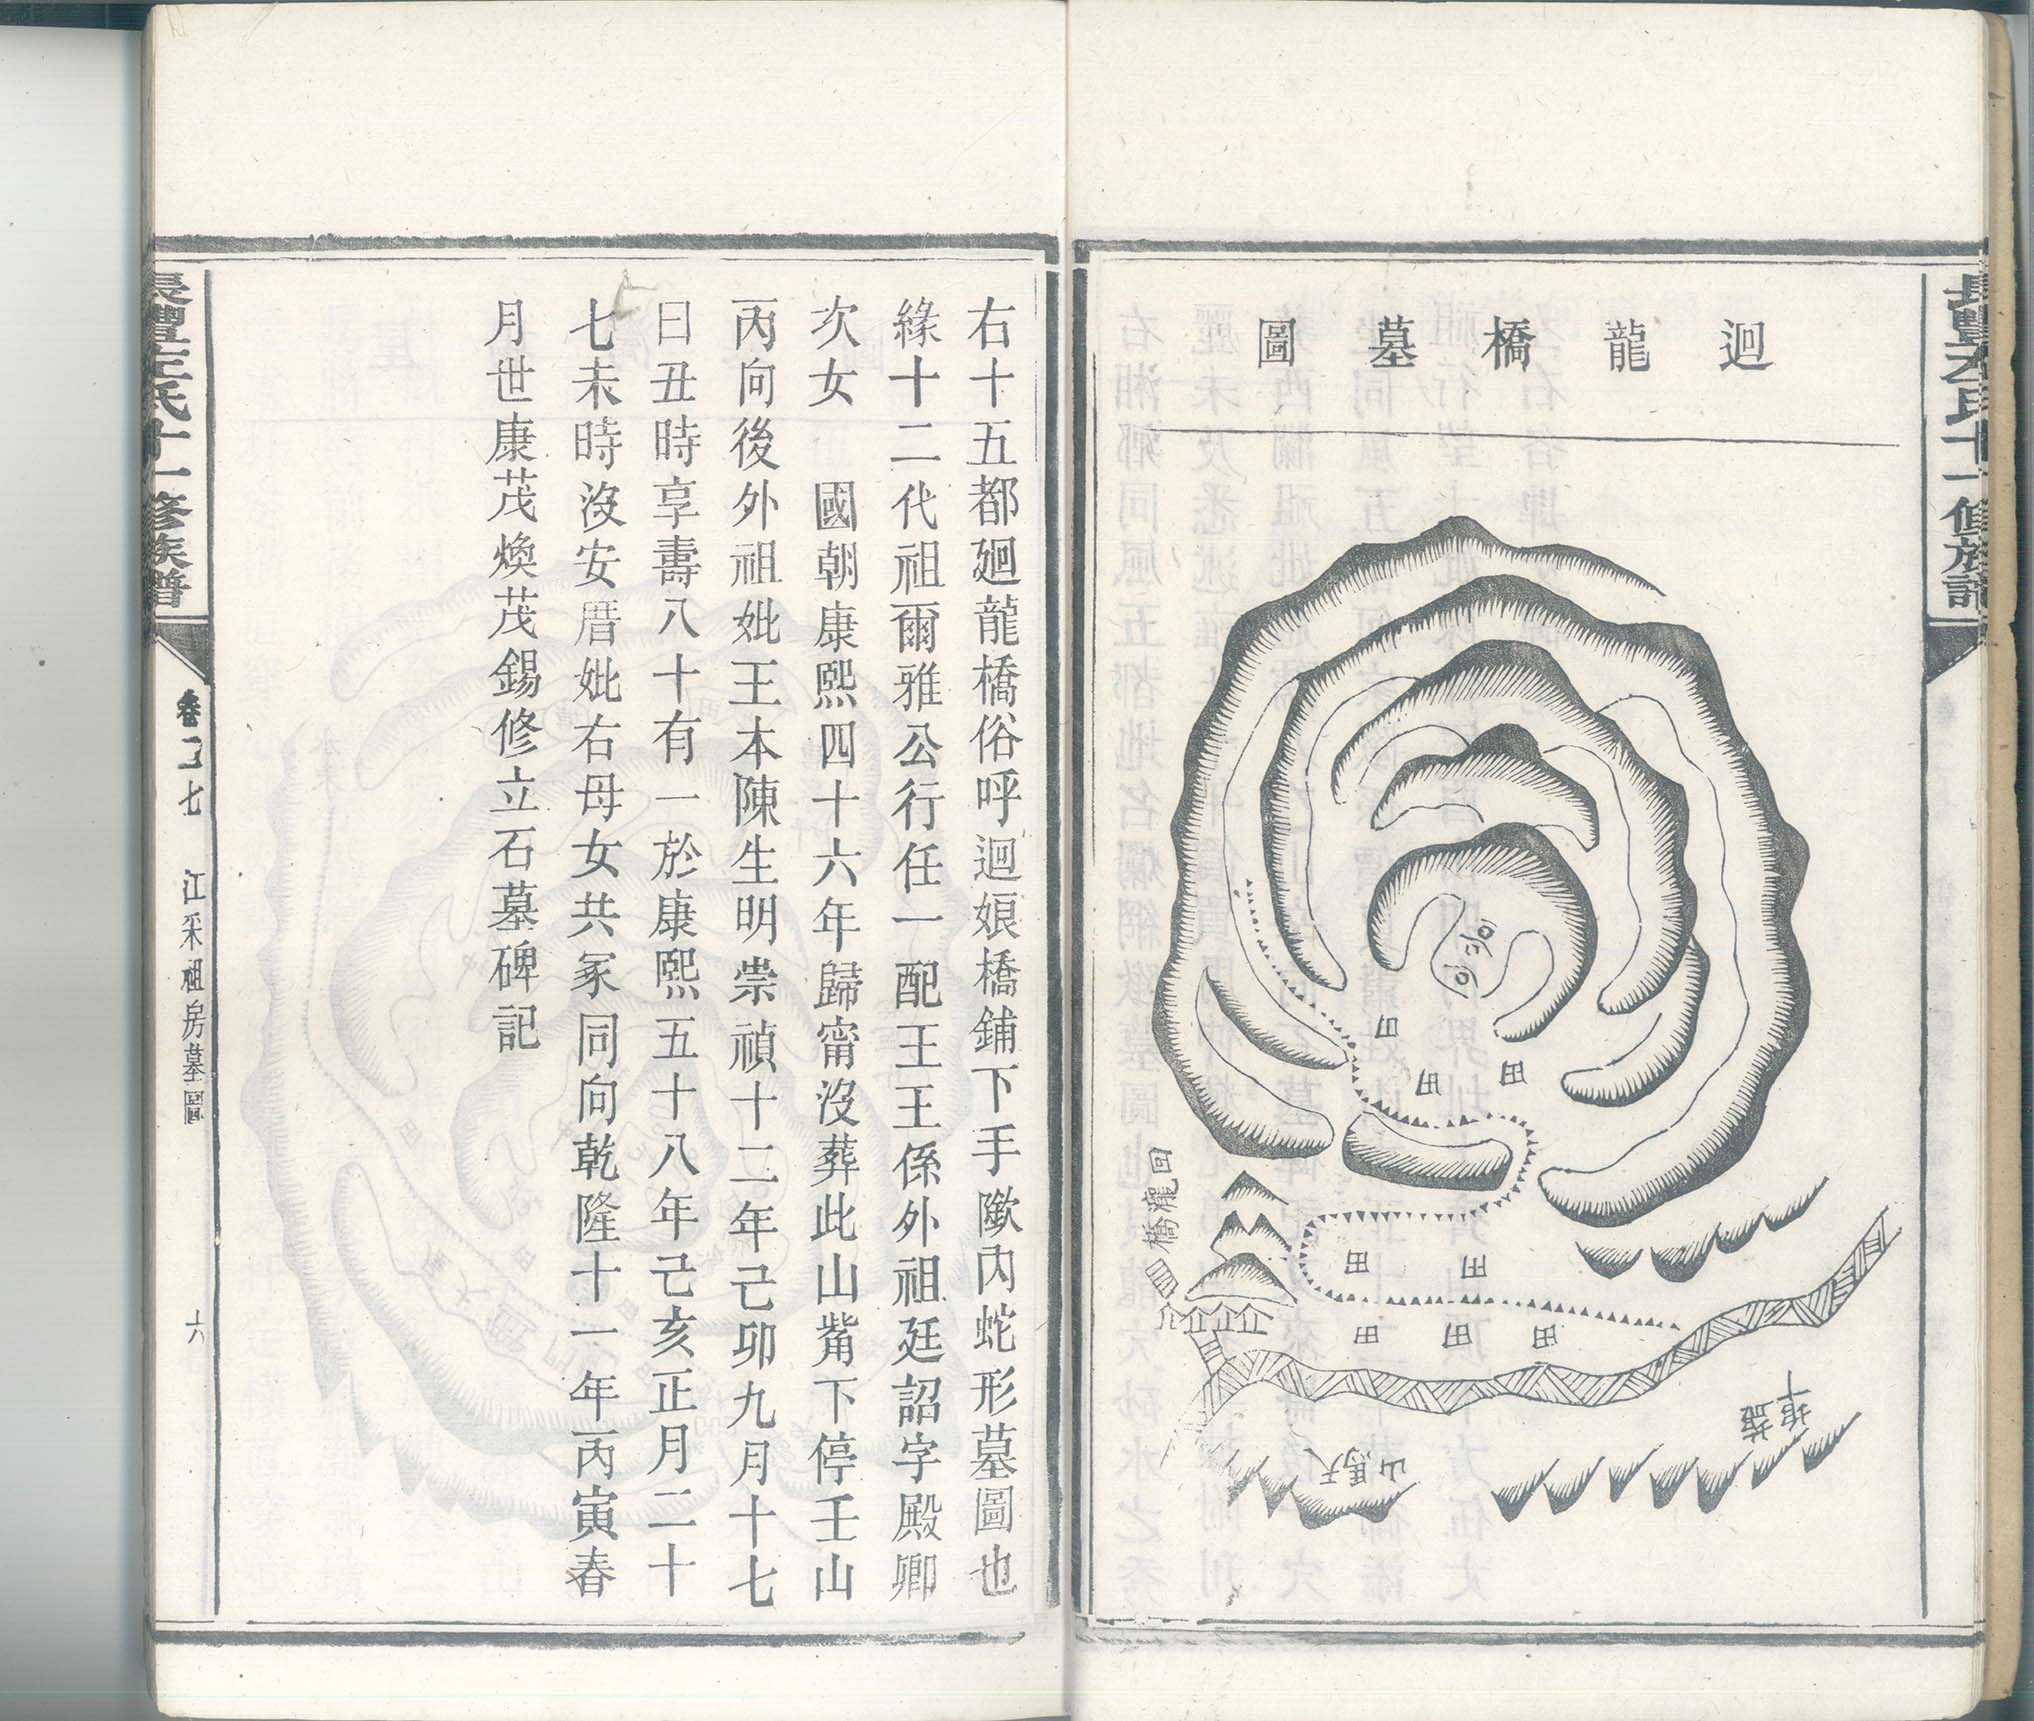 長豐左氏十一修族譜
迴龍橋墓圖
田
田
田
回龍橋
田
田
田
田
田
天馬山
右十五都廻龍橋俗呼迴娘橋鋪下手隞內蛇形墓圖也
緣十二代祖爾雅公行任一配王王係外祖廷詔字殿卿
次女 國朝康熙四十六年歸甯沒葬此山觜下停壬山
丙向後外祖妣王本陳生明崇禎十二年己卯九月十七
日丑時享壽八十有一於康熙五十八年己亥正月二十
七未時沒安厝妣右母女共冢同向乾隆十一年丙寅春
月世康茂煥茂錫修立石墓碑記
長豐左氏十一修族譜
七 江采祖房墓圖
六